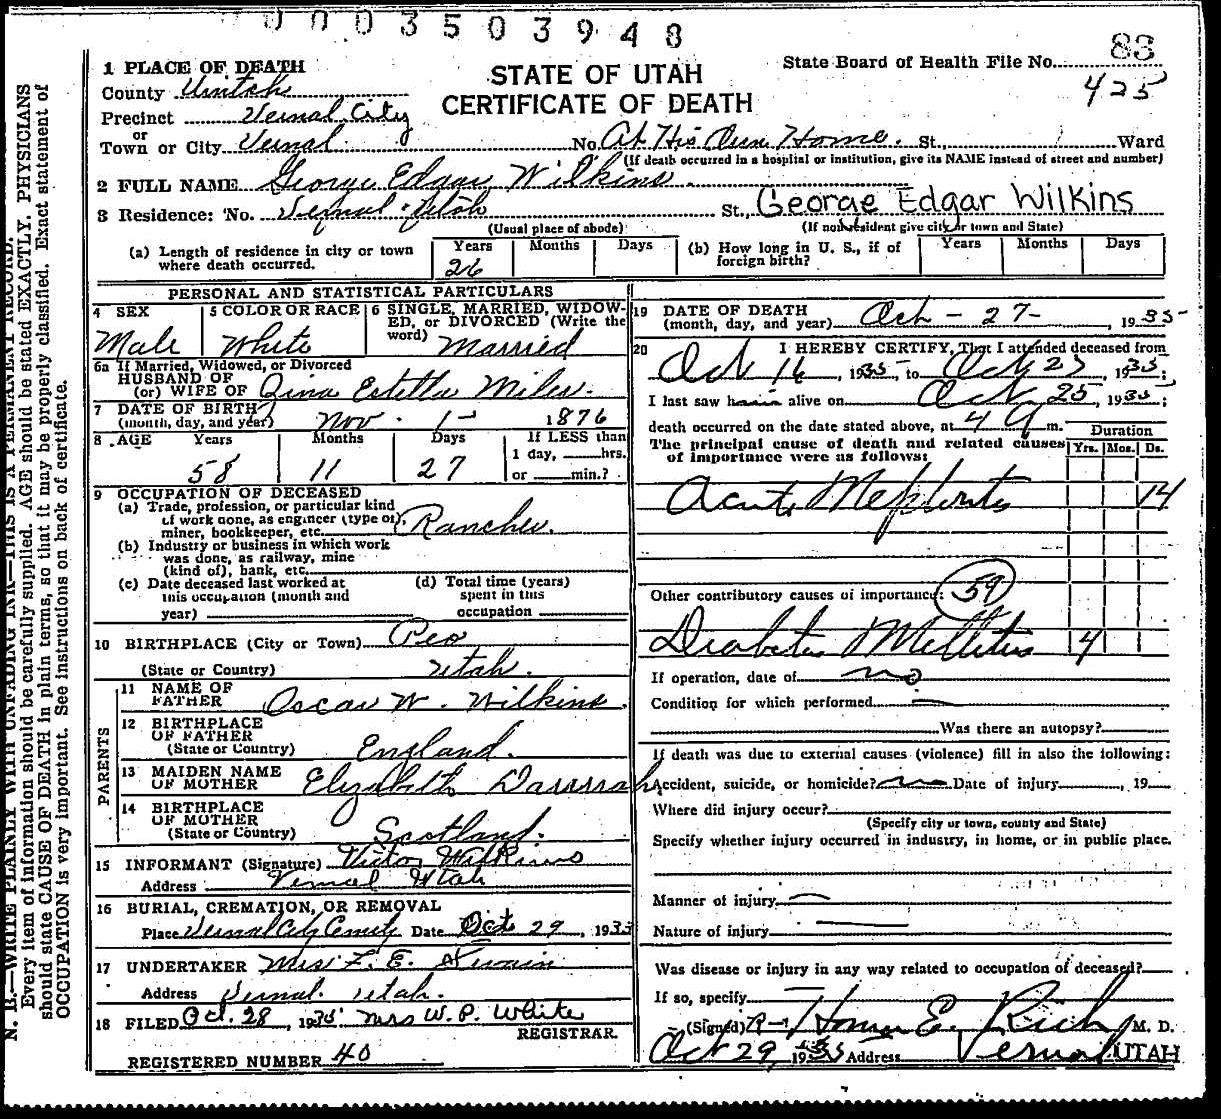 0003503948
State Board of Health File No. 83
425
STATE OF UTAH
CERTIFICATE OF DEATH
1 PLACE OF DEATH
County Uintah
Precinct Vernal City
or
Town or City Vernal No. At His Own Home. St., Ward
(If death occurred in a hospital or institution, give its NAME instead of street and number)
2 FULL NAME George Edgar Wilkins.
3 Residence: No. Vernal Utah St., George Edgar Wilkins
(Usual place of abode) (If nonresident give city or town and State)
(a) Length of residence in city or town where death occurred. Years 26 Months Days
(b) How long in U. S., if of foreign birth? Years Months Days
PERSONAL AND STATISTICAL PARTICULARS
4 SEX Male
5 COLOR OR RACE White
6 SINGLE, MARRIED, WIDOWED, or DIVORCED (Write the word) Married
6a If Married, Widowed, or Divorced
HUSBAND OF
(or) WIFE OF Estella Miles.
7 DATE OF BIRTH
(month, day, and year) Nov. 1- 1876
8 AGE Years 58 Months 11 Days 27
If LESS than
1 day, hrs.
or min.?
9 OCCUPATION OF DECEASED
(a) Trade, profession, or particular kind
of work done, as engineer (type of),
miner, bookkeeper, etc. Rancher.
(b) Industry or business in which work
was done, as railway, mine
(kind of), bank, etc.
(c) Date deceased last worked at
this occupation (month and
year)
(d) Total time (years)
spent in this
occupation
10 BIRTHPLACE (City or Town) Peo
(State or Country) Utah.
PARENTS
11 NAME OF
FATHER Oscar W. Wilkins.
12 BIRTHPLACE
OF FATHER
(State or Country) England.
13 MAIDEN NAME
OF MOTHER Elizabeth
14 BIRTHPLACE
OF MOTHER
(State or Country) Scotland.
15 INFORMANT (Signature) Victor Wilkins
Address Vernal Utah
16 BURIAL, CREMATION, OR REMOVAL
Place Vernal City Cemety Date Oct 29, 1935
17 UNDERTAKER Mrs. E.
Address Vernal. Utah.
18 FILED Oct. 28, 1935 Mrs W. P. White
REGISTRAR.
REGISTERED NUMBER 40
19 DATE OF DEATH
(month, day, and year) Oct - 27-, 1935
20 I HEREBY CERTIFY, That I attended deceased from
Oct 16, 1935, to Oct 25, 1935;
I last saw him alive on Oct 25, 1935;
death occurred on the date stated above, at 4 m.
The principal cause of death and related causes
of importance were as follows:
Duration
Yrs. Mos. Ds.
Acute Nephritis 14
Other contributory causes of importance: 59
Diabetes Mellitus 4
If operation, date of no
Condition for which performed
Was there an autopsy?
If death was due to external causes (violence) fill in also the following:
Accident, suicide, or homicide? no Date of injury, 19
Where did injury occur?
(Specify city or town, county and State)
Specify whether injury occurred in industry, in home, or in public place.
Manner of injury
Nature of injury
Was disease or injury in any way related to occupation of deceased?
If so, specify
(Signed) Homer E. Rich M. D.
Oct 29, 1935 Address Vernal UTAH
N. B.—WRITE PLAINLY WITH UNFADING INK—THIS IS A PERMANENT RECORD.
Every item of information should be carefully supplied. AGE should be stated EXACTLY. PHYSICIANS
should state CAUSE OF DEATH in plain terms, so that it may be properly classified. Exact statement of
OCCUPATION is very important. See instructions on back of certificate.